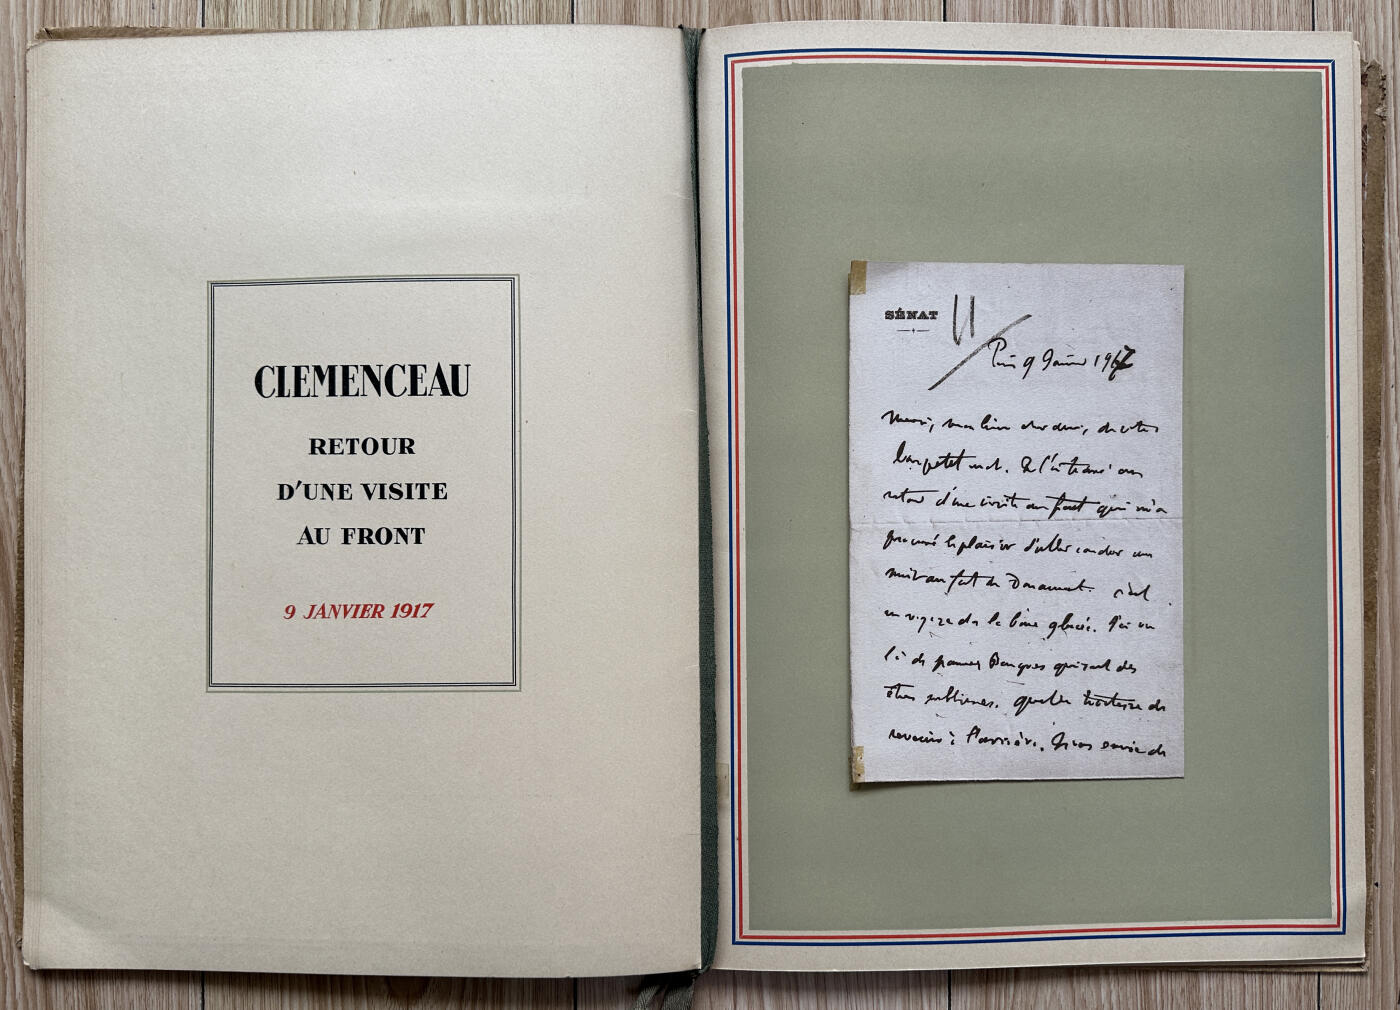 CLEMENCEAU
RETOUR
D'UNE VISITE
AU FRONT
9 JANVIER 1917
SÉNAT
11
Paris 9 Janvier 1917
Merci, mon bien cher ami, de votre
bon petit mot. Je l'ai trouvé au
retour d'une visite au front qui m'a
procuré le plaisir d'aller coucher une
nuit au fort de Douaumont. c'est
un voyage dans la boue glacée. J'ai vu
là de pauvres bougres qui sont des
êtres sublimes. Quelle tristesse de
revenir à l'arrière. envie de